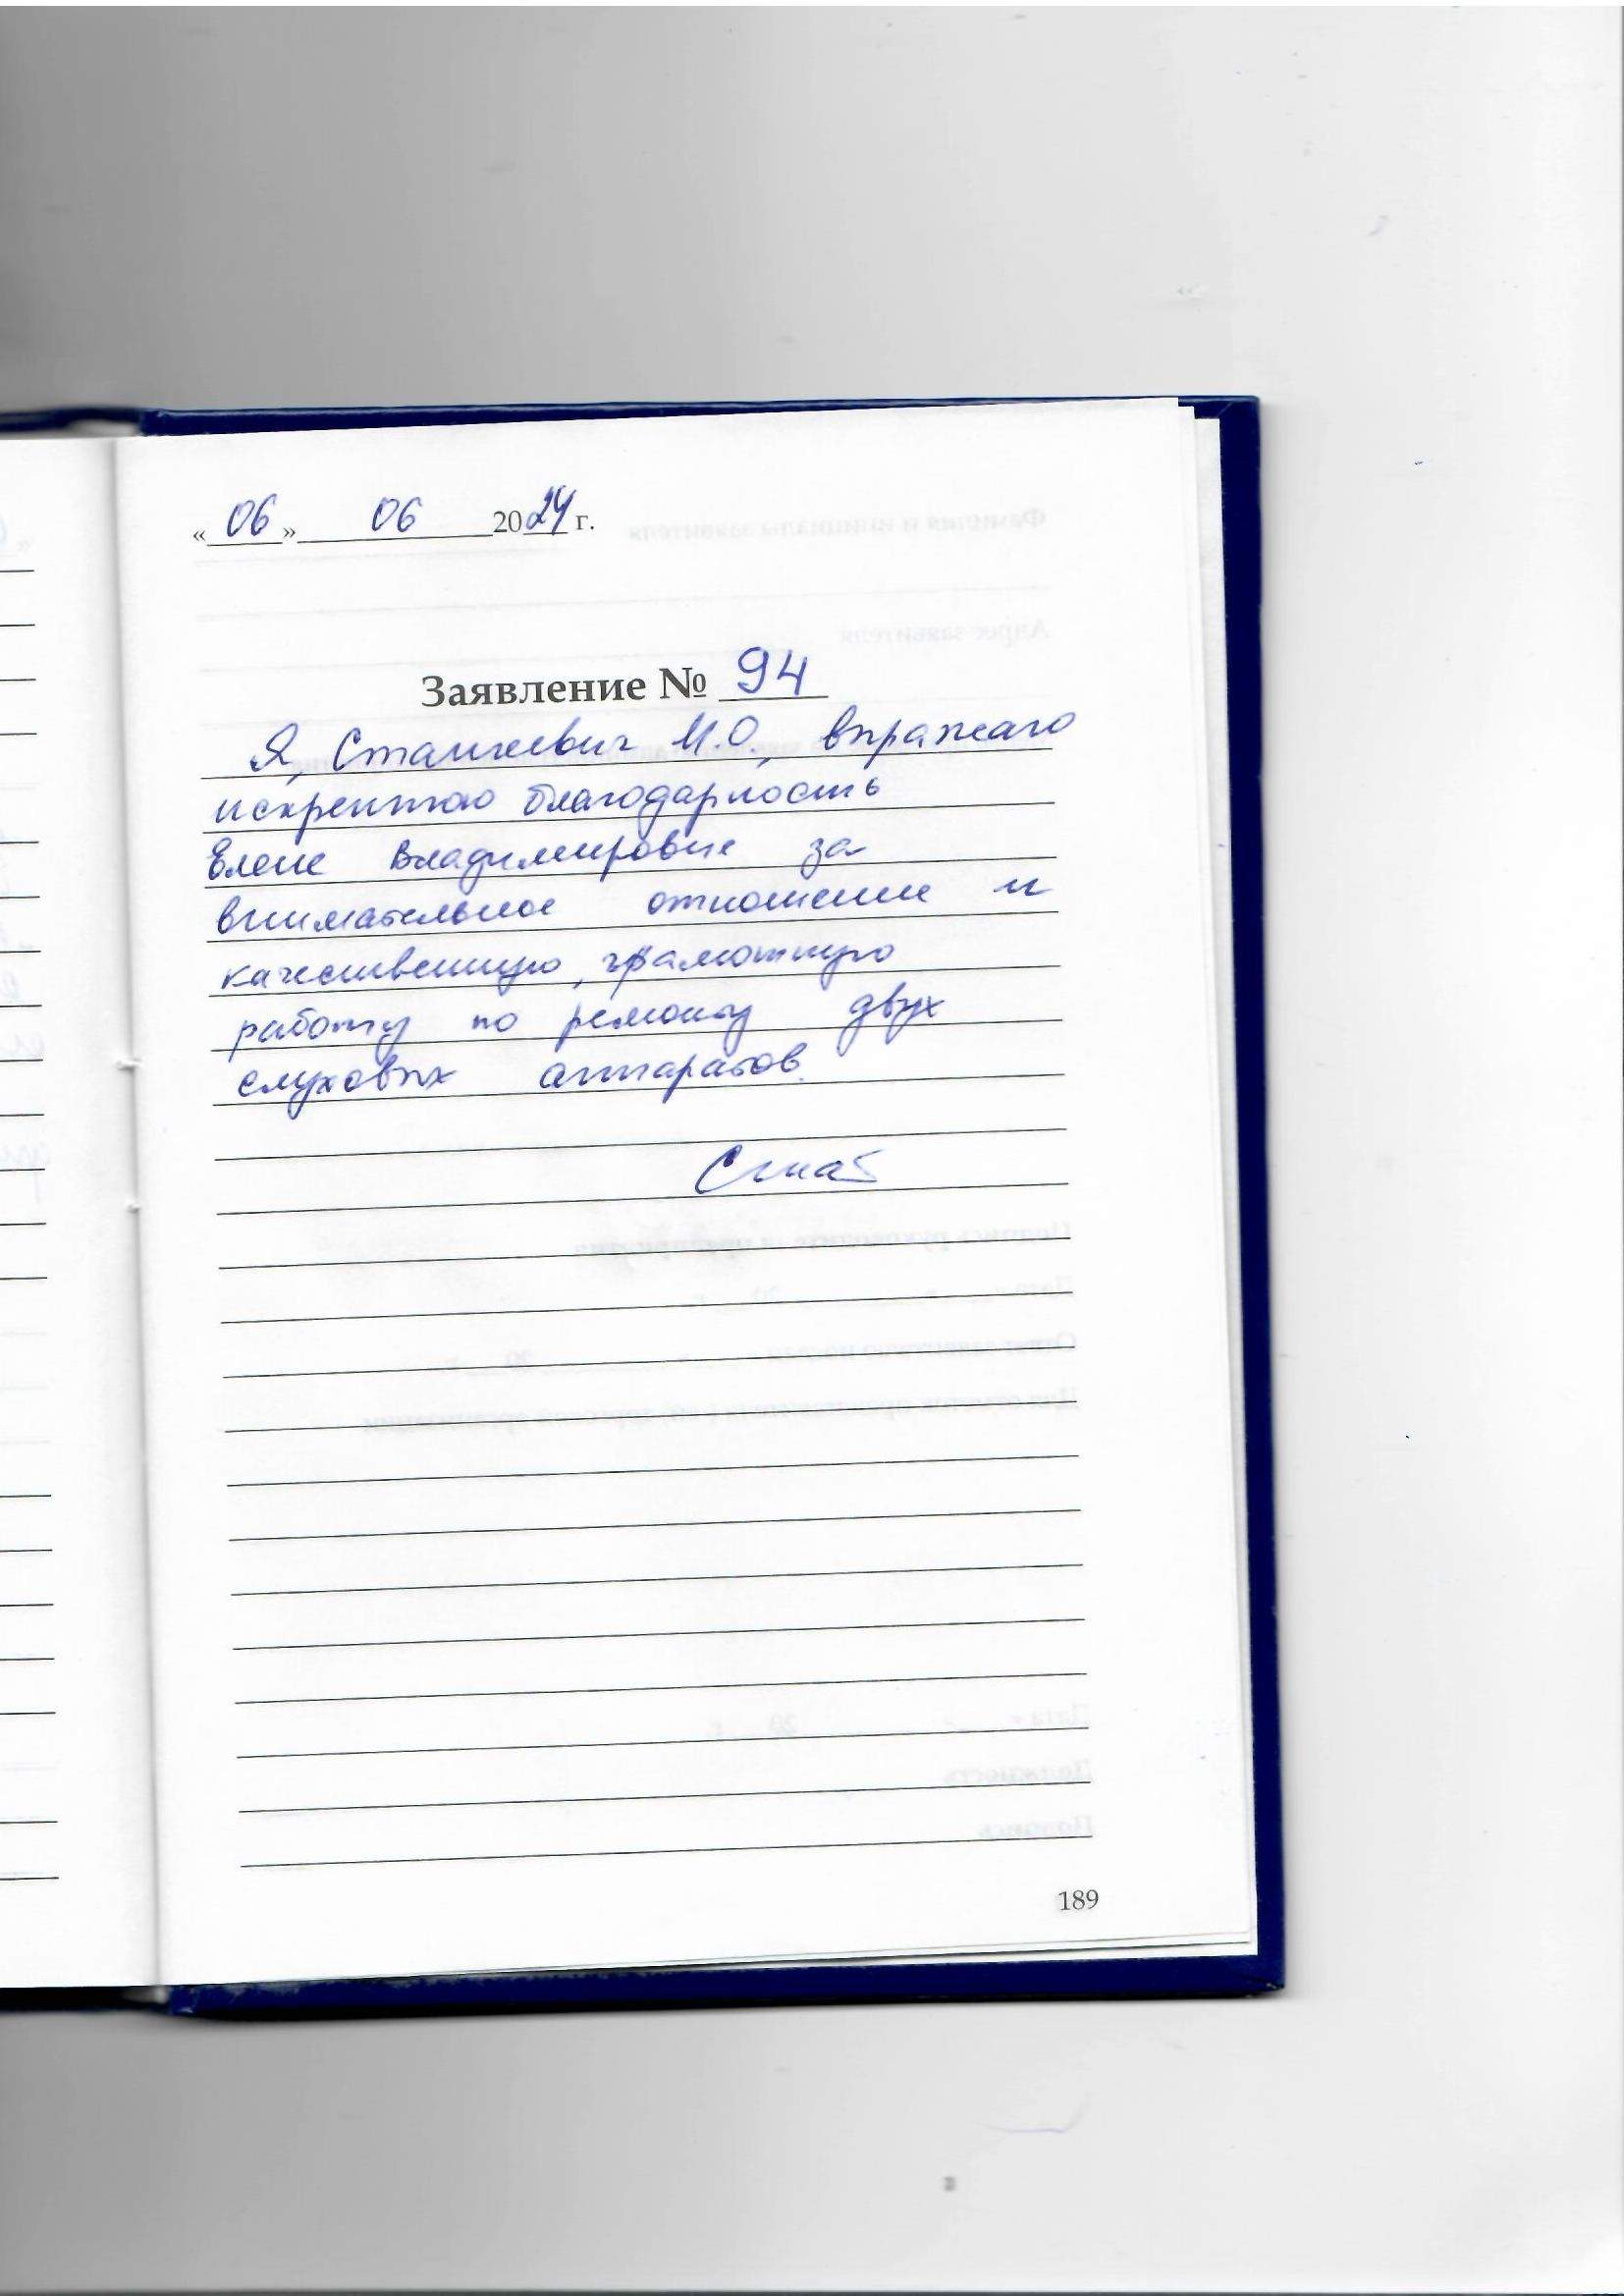 « 06 » 06 2024 г.
Заявление № 94
Я, Станкевич М.О., выражаю
искреннюю благодарность
Елене Владимировне за
внимательное отношение и
качественную, грамотную
работу по ремонту двух
слуховых аппаратов.
189